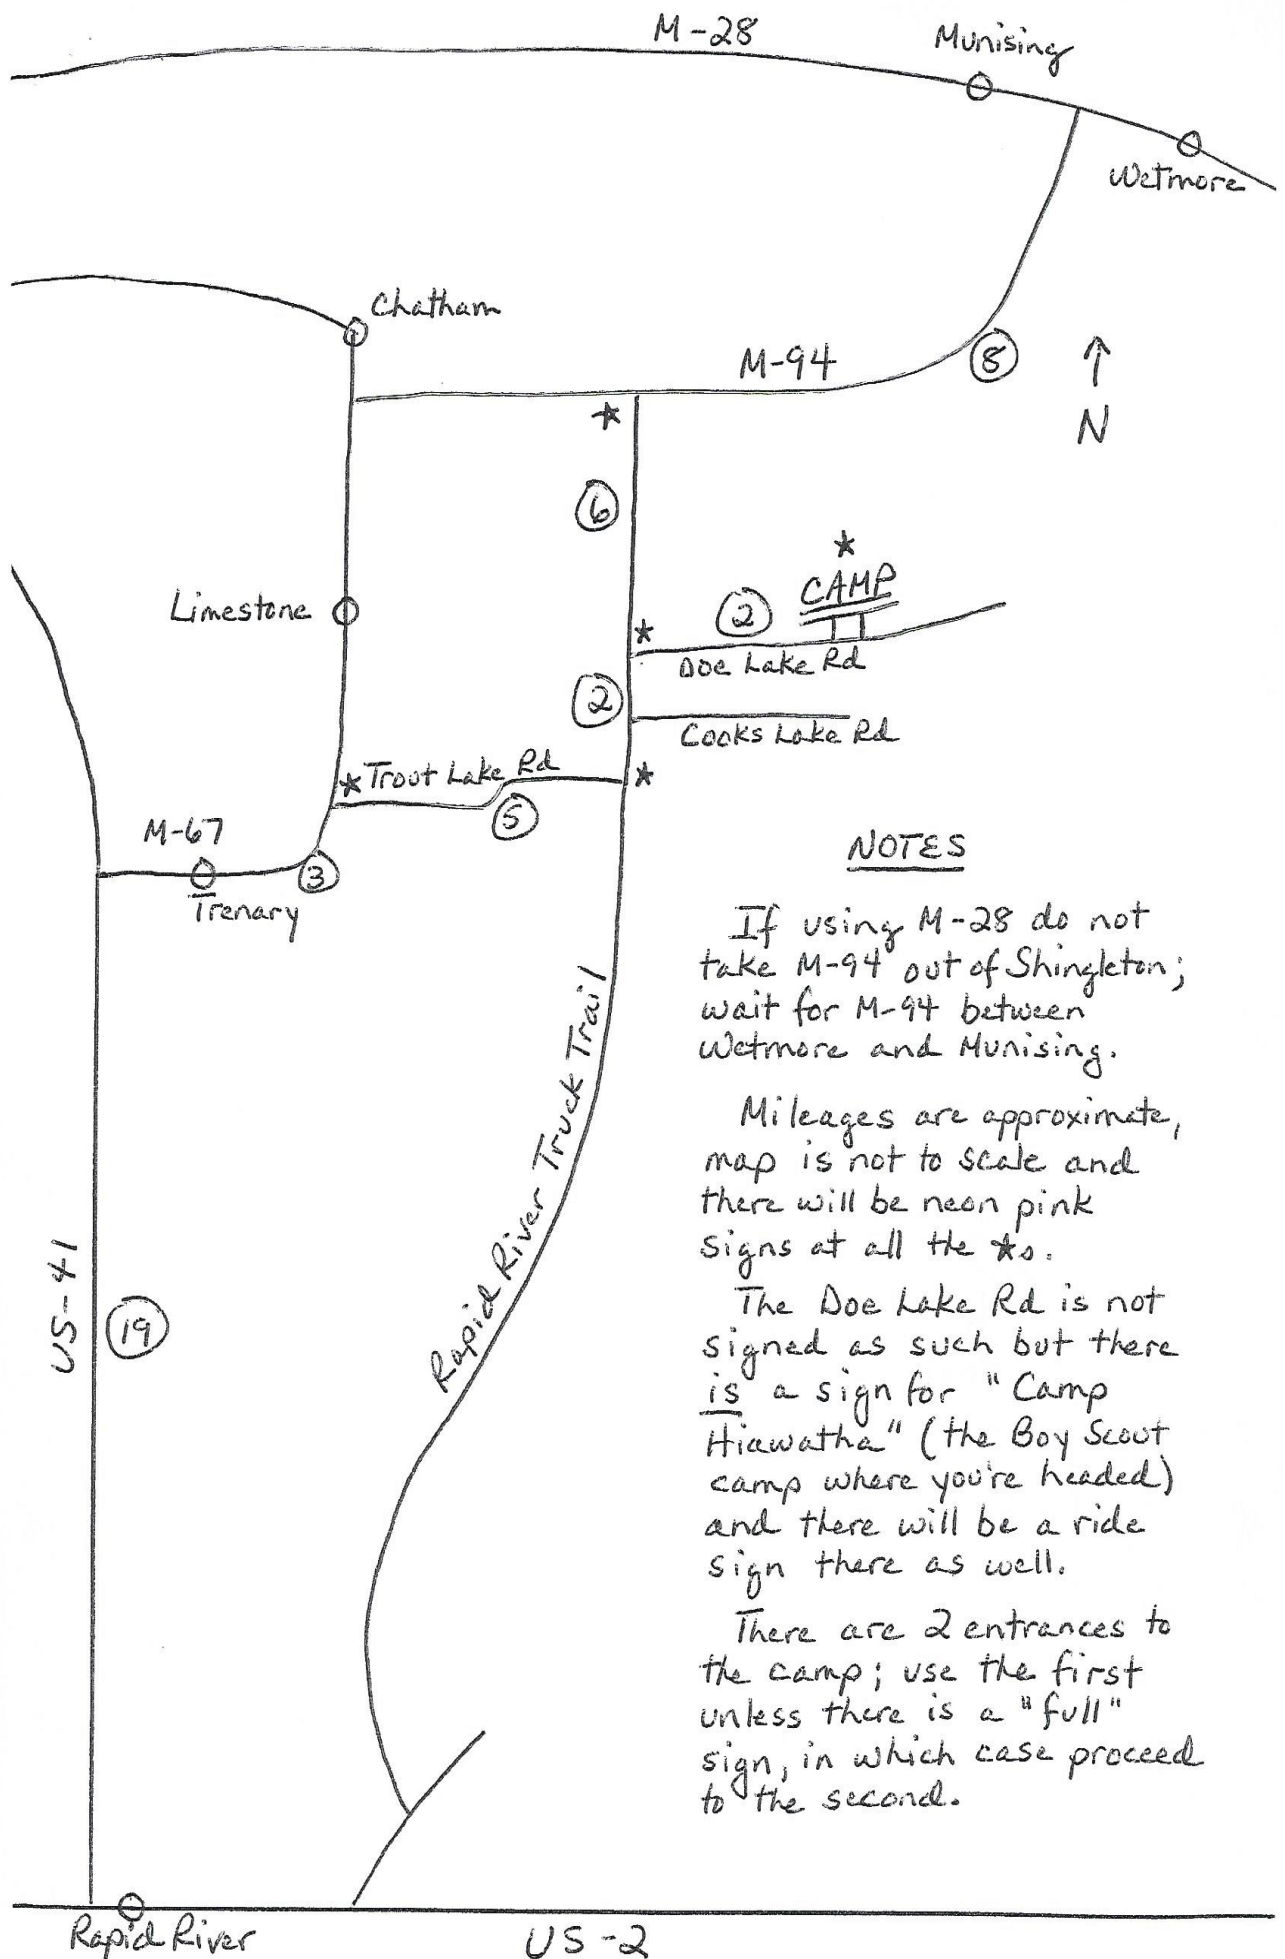 M-28
Munising
Wetmore
Chatham
M-94
8
N
★
6
★
CAMP
2
Limestone
★
Doe Lake Rd
2
Cooks Lake Rd
★ Trout Lake Rd
★
5
M-67
3
Trenary
NOTES
If using M-28 do not
take M-94 out of Shingleton;
wait for M-94 between
Wetmore and Munising.
Mileages are approximate,
map is not to scale and
there will be neon pink
signs at all the ★s.
The Doe Lake Rd is not
signed as such but there
is a sign for "Camp
Hiawatha" (the Boy Scout
camp where you're headed)
and there will be a ride
sign there as well.
There are 2 entrances to
the camp; use the first
unless there is a "full"
sign, in which case proceed
to the second.
Rapid River Truck Trail
US-41
19
Rapid River
US-2